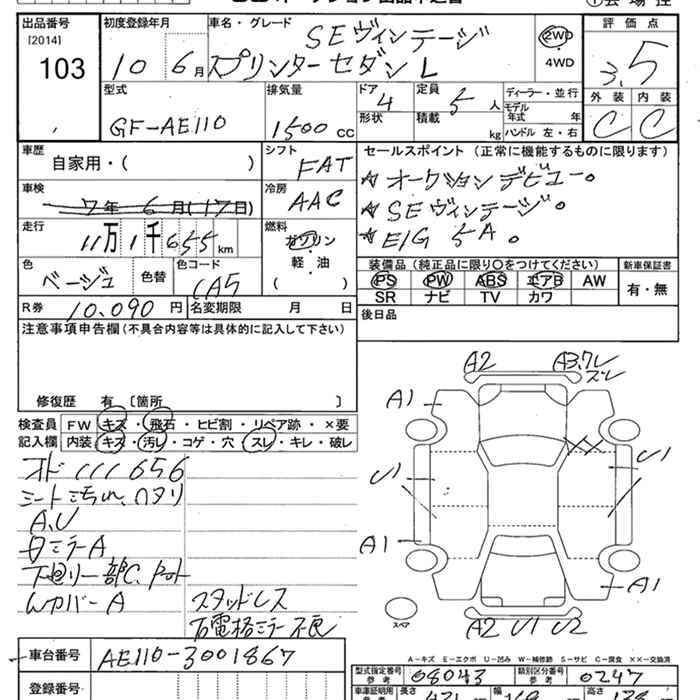 出品番号
[2014]
103
初度登録年月
10 6月
車名・グレード
SEヴィンテージ
スプリンターセダン L
2WD
・
4WD
評価点
3.5
外装 内装
C C
型式
GF-AE110
排気量
1500 cc
ドア 4
形状
定員 5 人
積載 kg
ディーラー・並行
モデル年式 年
ハンドル 左・右
車歴
自家用・( )
シフト
FAT
車検
7年6月(17日)
冷房
AAC
走行
11万1千655km
燃料
ガソリン
・
軽・油
( )
色
ベージュ
色替
色コード
CA5
R券 10.090 円
名変期限 月 日
セールスポイント (正常に機能するものに限ります)
☆オークションデビュー。
☆SEヴィンテージ。
☆E/G 5A。
装備品(純正品に限り○をつけてください)
PS PW ABS エアB AW
SR ナビ TV カワ
新車保証書
有・無
後日品
注意事項申告欄(不具合内容等は具体的に記入して下さい)
修復歴 有〔箇所 〕
検査員 FW キズ・飛石・ヒビ割・リペア跡・×要
記入欄 内装 キズ・汚レ・コゲ・穴・スレ・キレ・破レ
オド111656
シート汚れ、
A,U
ミラーA
下廻り一部C,
カバーA
スタッドレス
右電格ミラー不良
A2 A3,ワレ
ズレ
A1
U1 U1
A1 A1
スペア
A2 U1 U2
A-キズ E-エクボ U-凹み W-補修跡 S-サビ C-腐食 ××-交換済
車台番号 AE110-3001867
登録番号
型式指定番号
参考 08043
類別区分番号
参考 0247
車庫証明用
長さ 幅 高さ